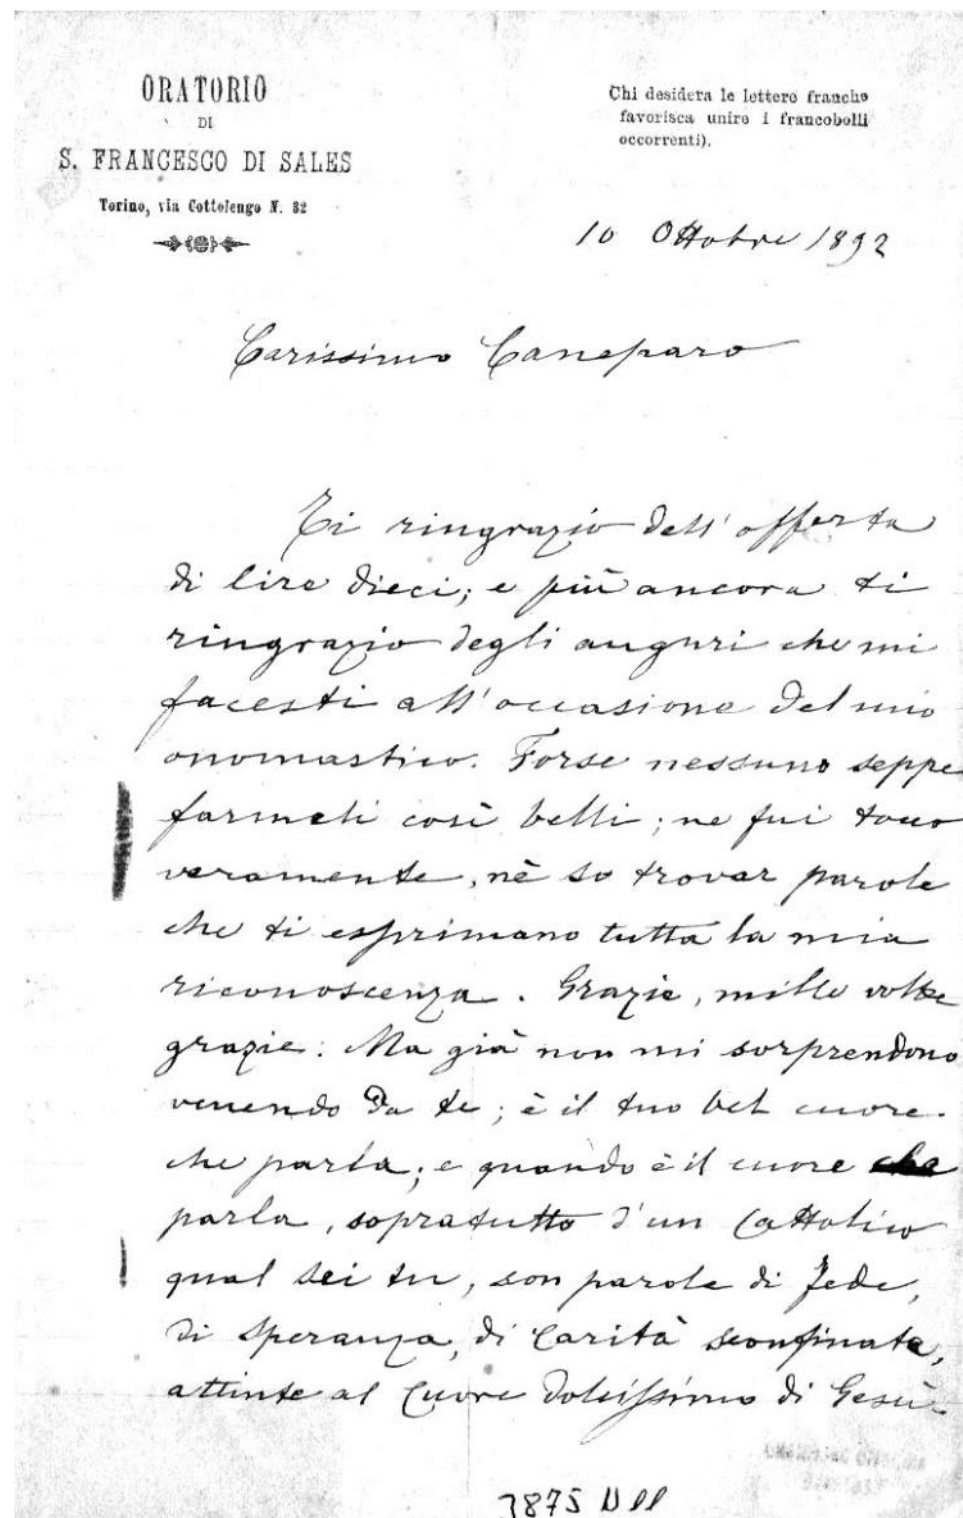 ORATORIO
DI
S. FRANCESCO DI SALES
Torino, via Cottolengo N. 32
Chi desidera le lettere franche
favorisca unire i francobolli
occorrenti).
10 Ottobre 1892
Carissimo Caneparo
Ti ringrazio dell'offerta
di lire dieci; e più ancora ti
ringrazio degli auguri che mi
facesti all'occasione del mio
onomastico. Forse nessuno seppe
farmeli così belli; ne fui tocco
veramente, nè so trovar parole
che ti esprimano tutta la mia
riconoscenza. Grazie, mille volte
grazie. Ma già non mi sorprendono
venendo da te; è il tuo bel cuore
che parla; e quando è il cuore che
parla, sopratutto d'un Cattolico
qual sei tu, son parole di Fede,
di Speranza, di Carità sconfinata,
attinte al Cuore dolcissimo di Gesù.
3875